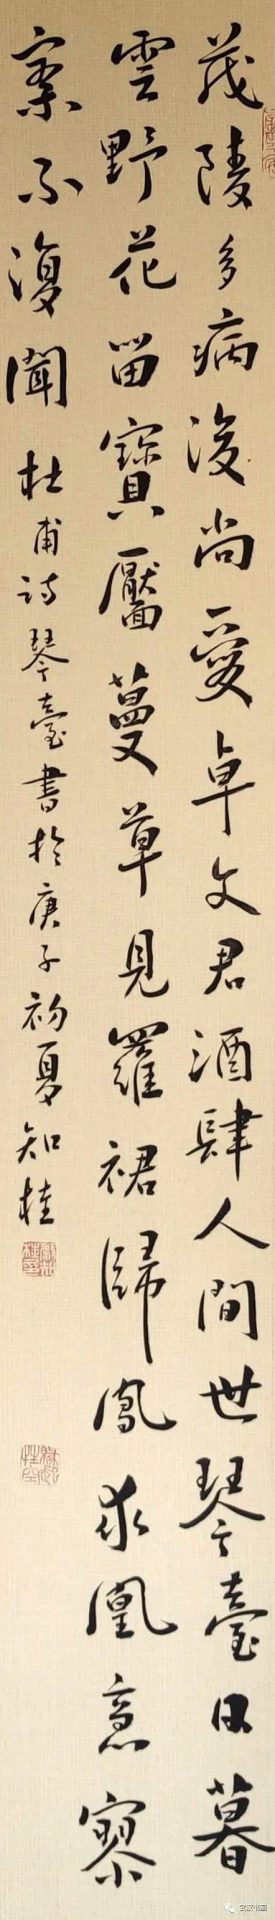 茂陵多病後尚愛卓文君酒肆人間世琴臺日暮
雲野花留寶靨蔓草見羅裙歸鳳求凰意寥
寥不復聞
杜甫詩琴臺書於庚子初夏知桂
武汉书画